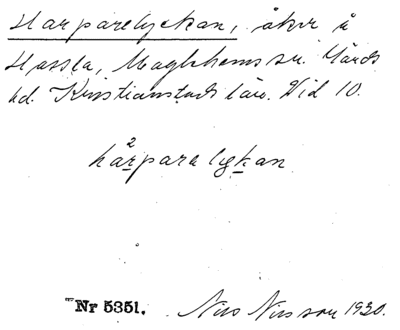 Harparelyckan, åker å
Hassla, Maglehems sn. Gärds
hd. Kristianstads län. Vid 10.
2
hárpara lykan
Nr 5351.
Nils Nilsson 1930.